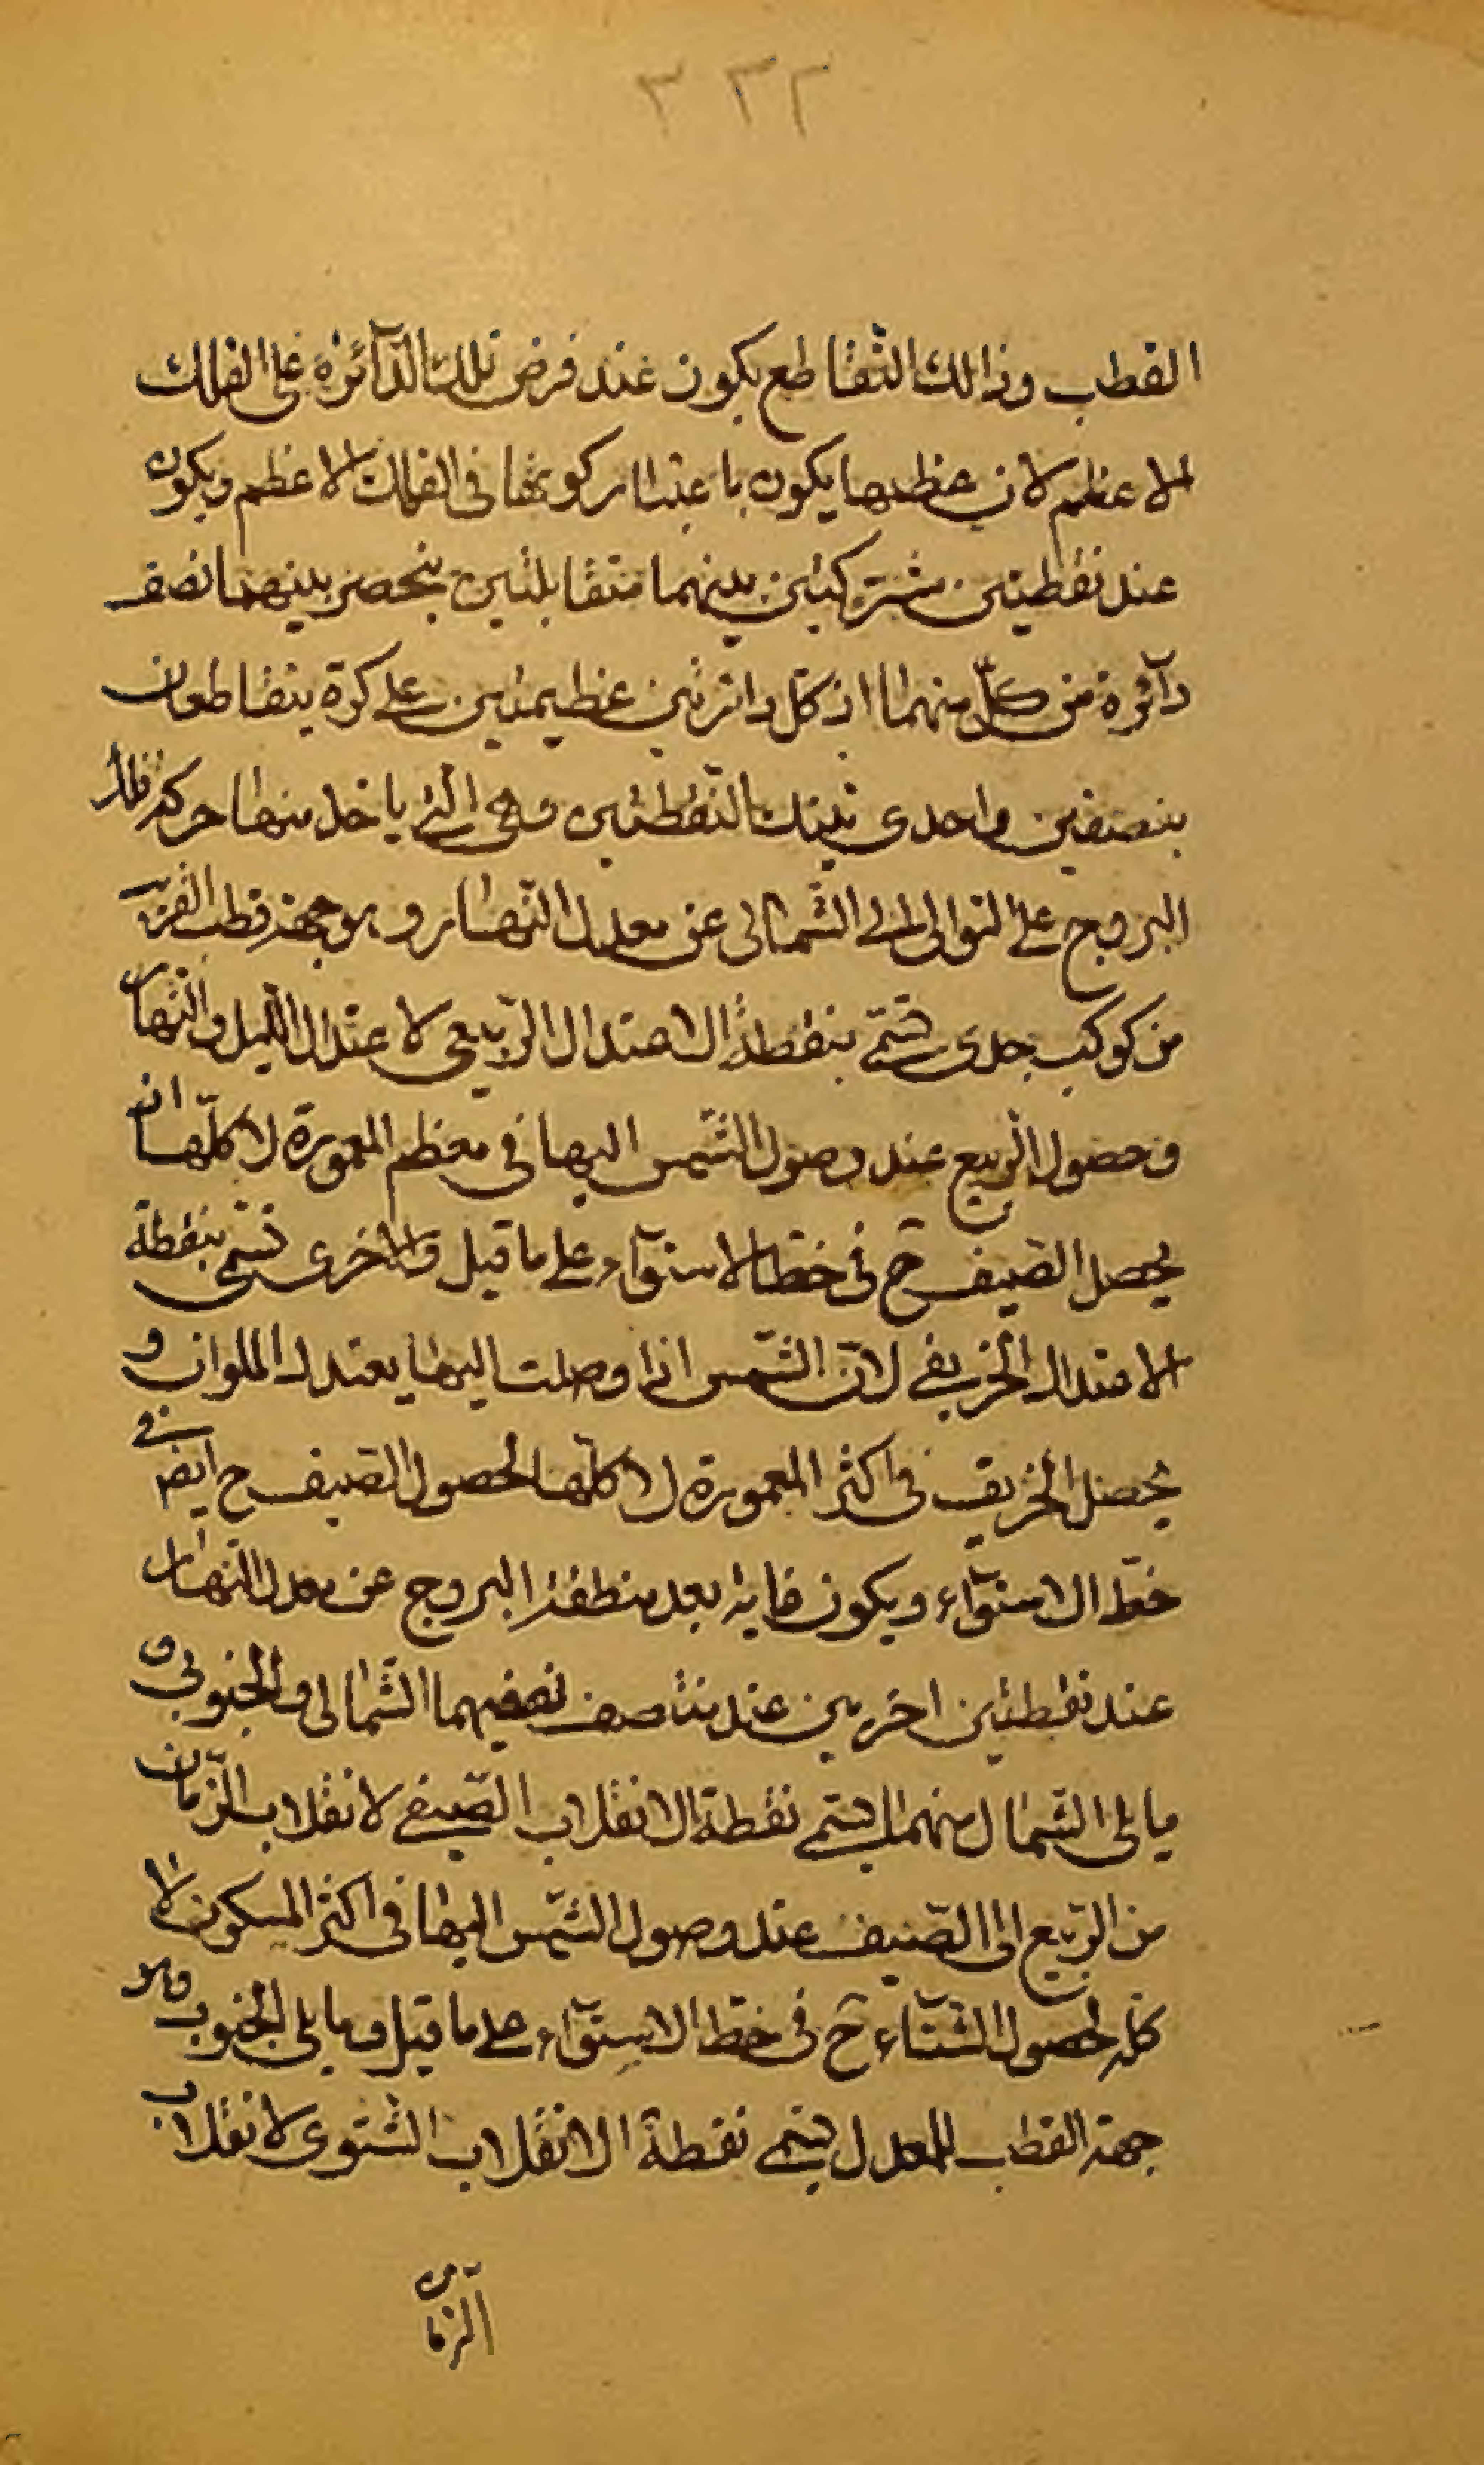 ٣٣٢
القطب وذالك التقاطع يكون عند فرض تلك الدآئرة على الفلك
الاعظم لان عظمها يكون باعتبار كونها فى الفلك الاعظم ويكون
عند نقطتين مشتركتين بينهما متقابلتين ينحصر بينهما نصف
دآئرة من كلّ منهما اذ كل دائرتين عظيمتين على كرة يتقاطعان
بنصفين واحدى تينك النّقطتين وهى الّتى ياخذ منها حركة فلك
البروج على التوالى الى الشّمالى عن معدل النّهار وهو جهة قطب القريب
من كوكب جدى تسمّى بنقطة الاعتدال الرّبيعى لاعتدال اللّيل والنّهار
وحصول الرّبيع عند وصول الشّمس اليها فى معظم المعمورة لا كلّها اذ
يحصل الصّيف ح فى خطّ الاستوآء على ما قيل والاخرى تسمّى بنقطة
الاعتدال الخريفى لانّ الشّمس اذا وصلت اليها يعتدل الملوان و
يحصل الخريف فى اكثر المعمورة لا كلّها لحصول الصّيف ح ايض فى
خطّ الاستوآء ويكون غاية بعد منطقة البروج عن معدل النّهار
عند نقطتين اخريين عند منتصف نصفيهما الشّمالى والجنوبى و
ما يلى الشّمال منهما يسمّى نقطة الانقلاب الصّيفى لانقلاب الزّمان
من الرّبيع الى الصّيف عند وصول الشّمس اليها فى اكثر المسكون لا
كلّه لحصول الشّتآء ح فى خطّ الاستوآء على ما قيل وما يلى الجنوب وهو
جهة القطب للمعدل يسمّى نقطة الانقلاب الشّتوى لانقلاب
الزّمان